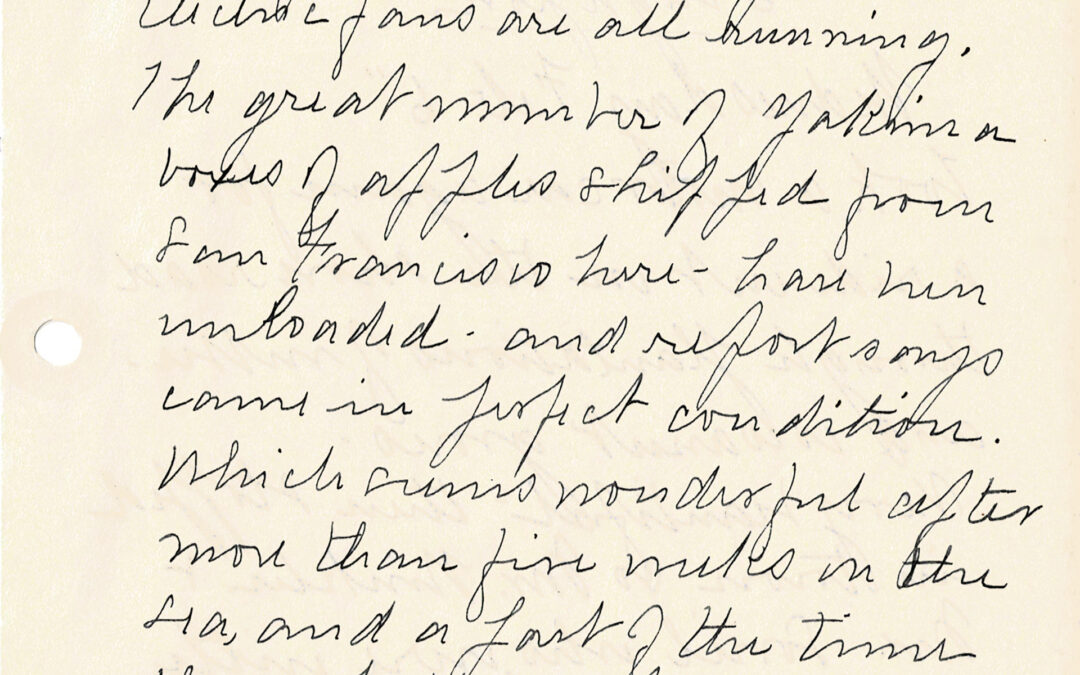 Electric fans are all running.
The great number of Yakima
boxes of apples shipped from
San Francisco here - have been
unloaded - and report says
came in perfect condition.
Which seems wonderful after
more than five weeks on the
sea, and a part of the time